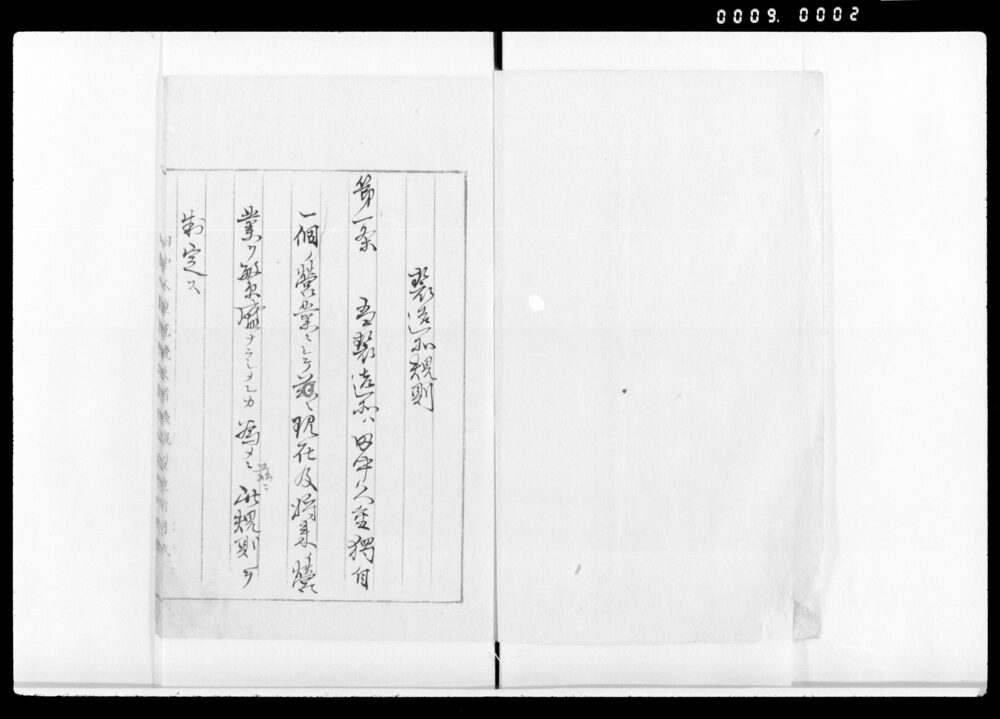 0009. 0002
製造所規則
第一条 吾製造所ハ田中久重獨自
一個ノ營業ニシテ茲ニ現在及將来ノ營
業ヲ繁盛ナラシメンカ為メニ茲ニ此規則ヲ
制定ス